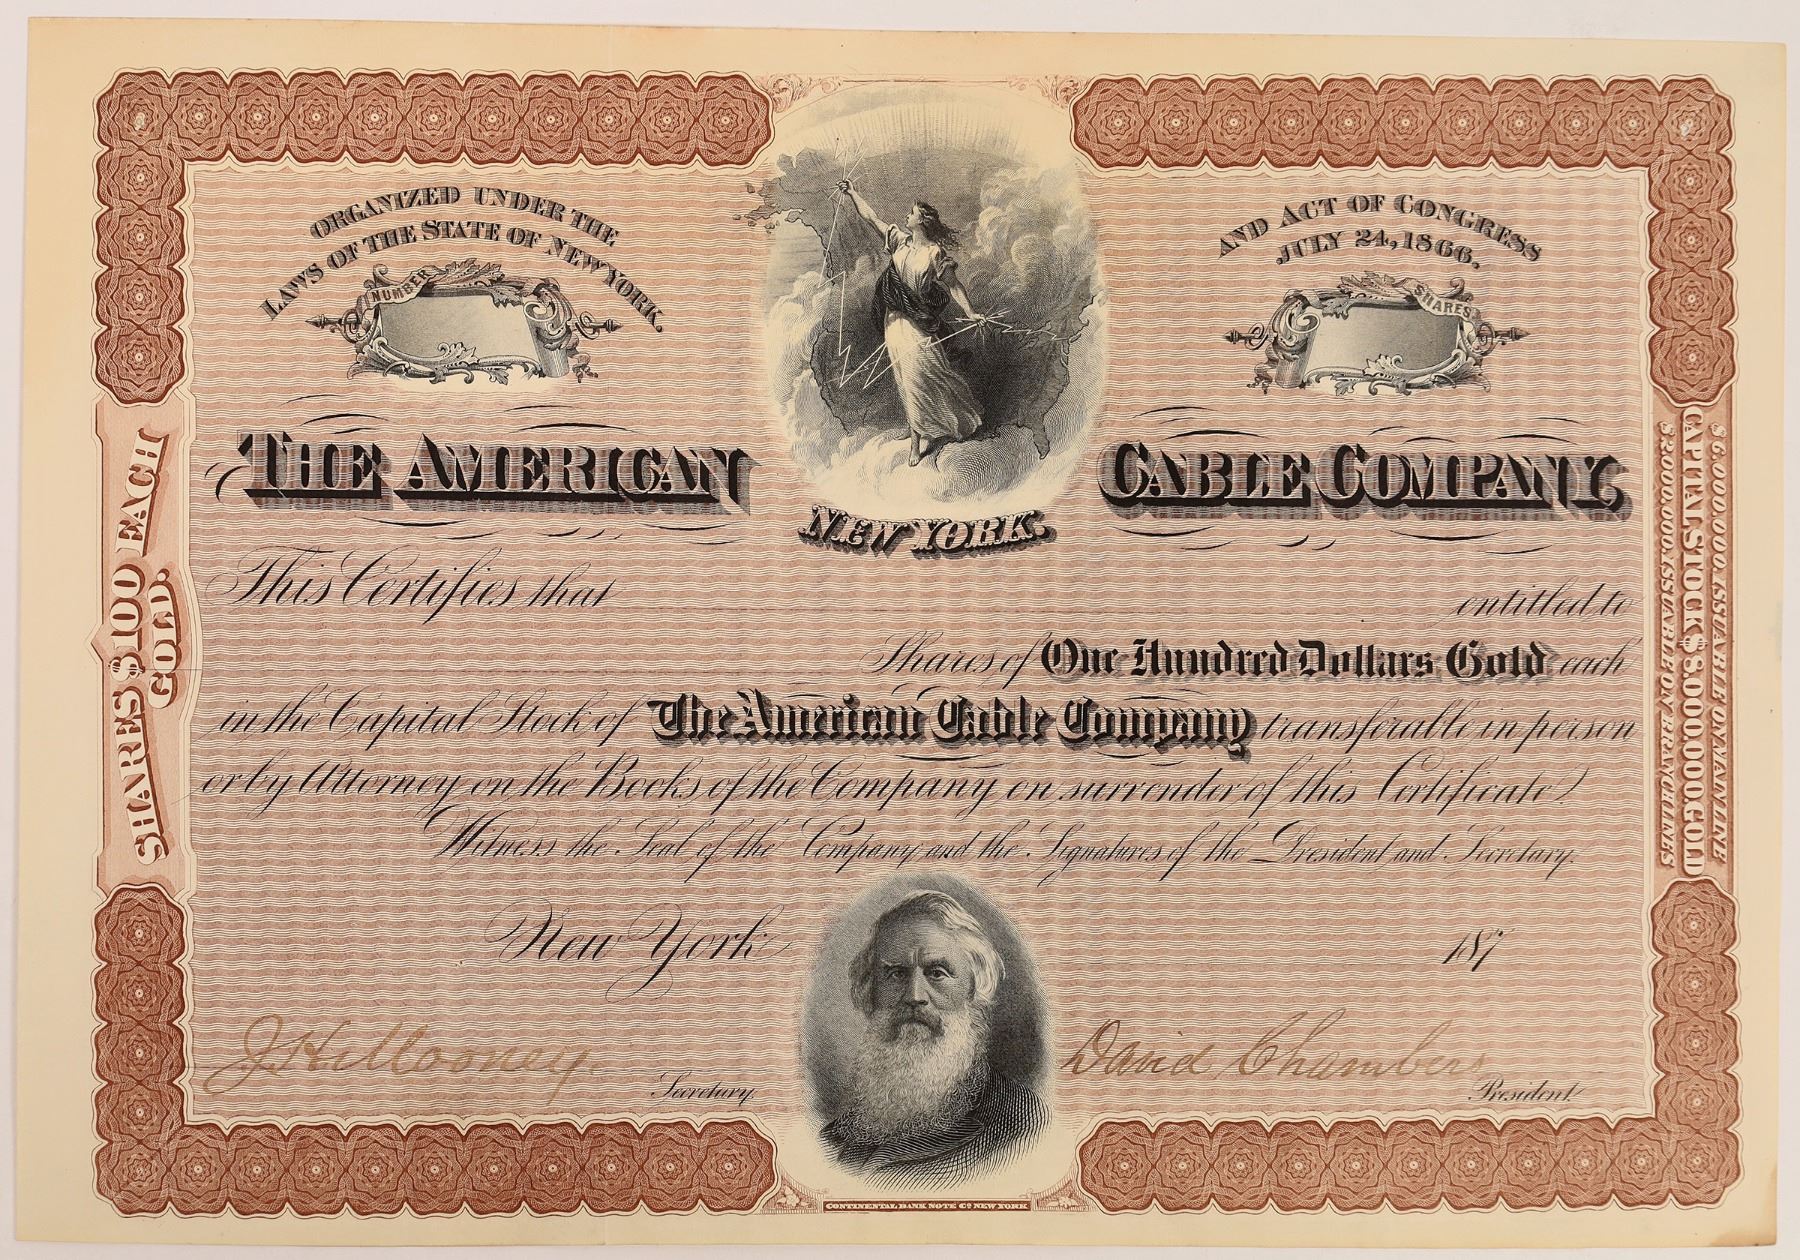 ORGANIZED UNDER THE
LAWS OF THE STATE OF NEW YORK.
NUMBER
AND ACT OF CONGRESS
JULY 24, 1866.
SHARES
THE AMERICAN CABLE COMPANY,
NEW YORK.
This Certifies that entitled to
Shares of One Hundred Dollars Gold each
in the Capital Stock of The American Cable Company transferable in person
or by Attorney on the Books of the Company on surrender of this Certificate.
Witness the Seal of the Company and the Signatures of the President and Secretary.
New York 187
J. H. Mooney. Secretary.
David Chambers President
SHARES $100 EACH
GOLD.
$6,000,000. ISSUABLE ON MAIN LINE
CAPITAL STOCK $8,000,000. GOLD
$2,000,000. ISSUABLE ON BRANCH LINES
CONTINENTAL BANK NOTE Co. NEW YORK